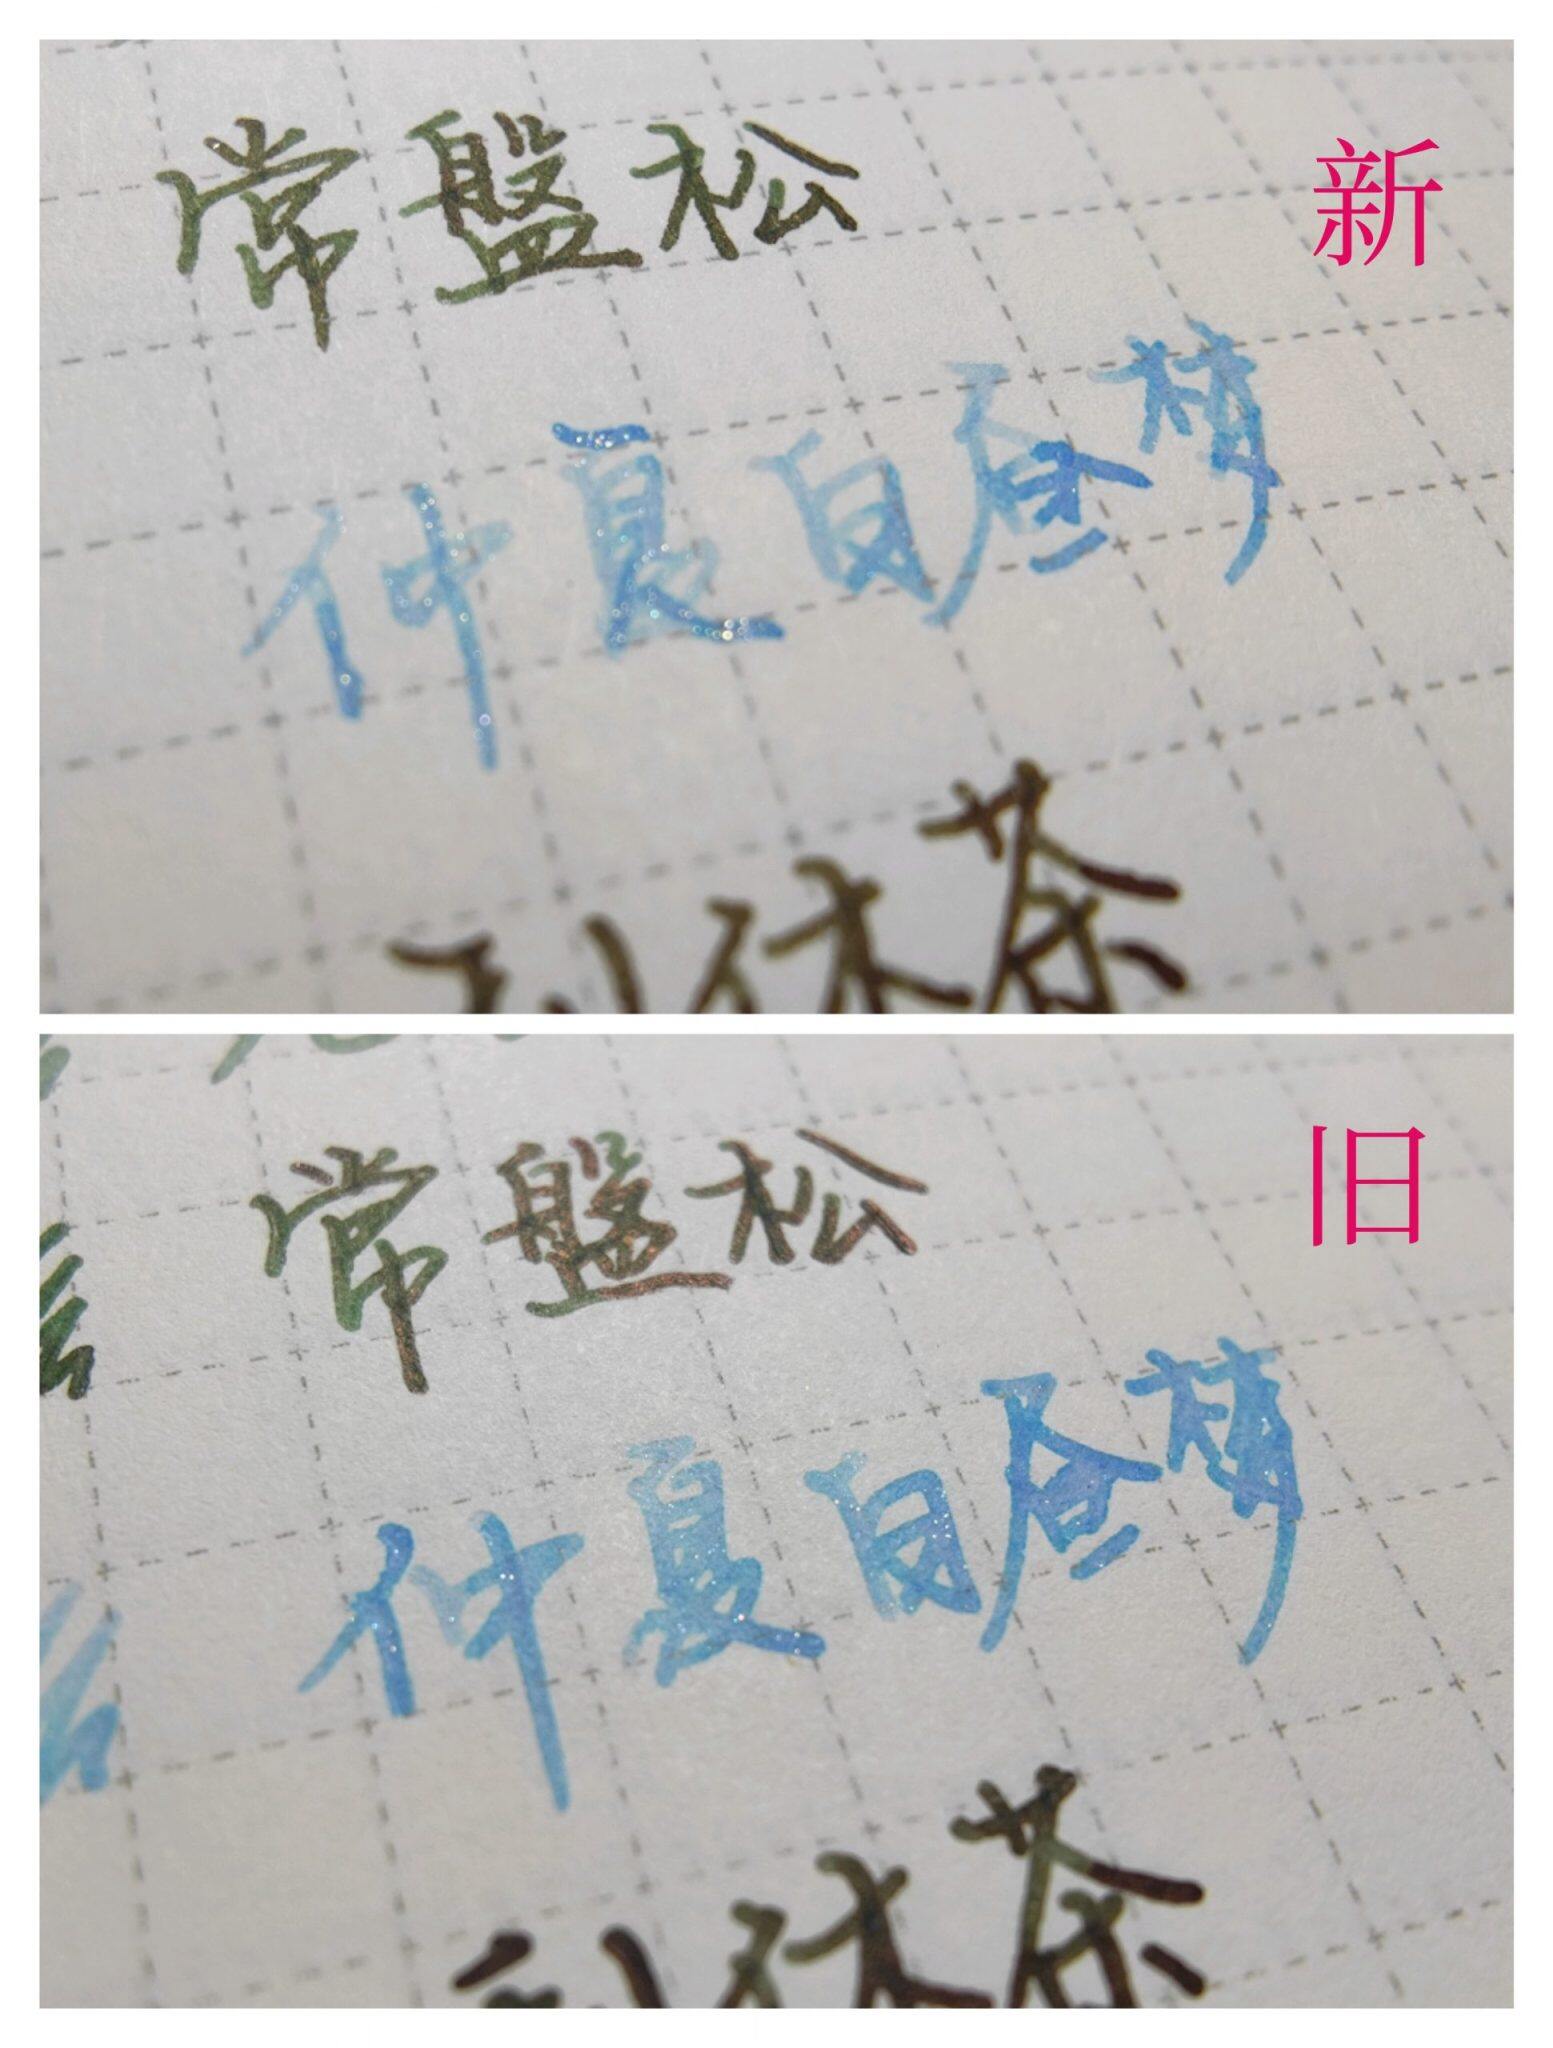 新
常盤松
仲夏白昼夢
利休茶
旧
常盤松
仲夏白昼夢
利休茶